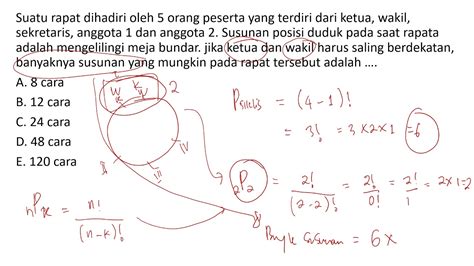 Suatu rapat dihadiri oleh 5 orang peserta yang terdiri dari ketua, wakil,
sekretaris, anggota 1 dan anggota 2. Susunan posisi duduk pada saat rapata
adalah mengelilingi meja bundar. jika ketua dan wakil harus saling berdekatan,
banyaknya susunan yang mungkin pada rapat tersebut adalah ....
A. 8 cara
B. 12 cara
C. 24 cara
D. 48 cara
E. 120 cara
W K
K W
2
II
III
IV
Psiklis = (4-1)!
= 3! = 3x2x1 = 6
2P2 = 2!/(2-2)! = 2!/0! = 2!/1 = 2x1=2
nPk = n!/(n-k)!
= 6x